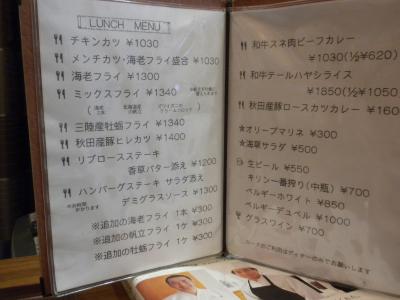 LUNCH MENU
チキンカツ ¥1030
メンチカツ・海老フライ盛合 ¥1030
海老フライ ¥1300
ミックスフライ ¥1340
三陸産牡蛎フライ ¥1340
秋田産豚ヒレカツ ¥1400
リブロースステーキ
香草バター添え ¥1200
ハンバーグステーキ サラダ添え
デミグラスソース ¥1300
※追加の海老フライ 1本 ¥300
※追加の帆立フライ 1ケ ¥300
※追加の牡蛎フライ 1ケ ¥300
和牛スネ肉ビーフカレー
¥1030(½¥620)
和牛テールハヤシライス
¥1850(½¥1050)
秋田産豚ロースカツカレー
¥1600
★オリーブマリネ ¥300
★海草サラダ ¥500
生ビール ¥550
キリン一番搾り(中瓶) ¥700
ベルギーホワイト ¥850
ベルギーデュベル ¥1000
グラスワイン ¥700
カードのご利用はディナーのみでお願いします